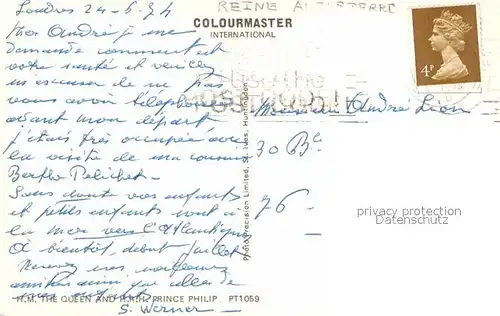 Londres 24-6-74
REINE ANGLETERRE
COLOURMASTER
INTERNATIONAL
4P
Mon André je me
demande comment est
votre santé et veuillez
m'excuser de ne pas
vous avoir téléphoné
avant mon départ
j'étais très occupée avec
la visite de ma cousine
Berthe Pelichet -
Sans doute vos enfants
et petits enfants vont à
la mer vers l'Atlantique
à bientôt, début juillet
Recevez mes meilleures
amitiés ainsi que celles de
S. Werner
use the
postcode
Monsieur André Léon
30 Bd
76 -
Photo Precision Limited, St. Ives, Huntingdon
privacy protection
Datenschutz
H.M. THE QUEEN AND H.R.H. PRINCE PHILIP PT1059